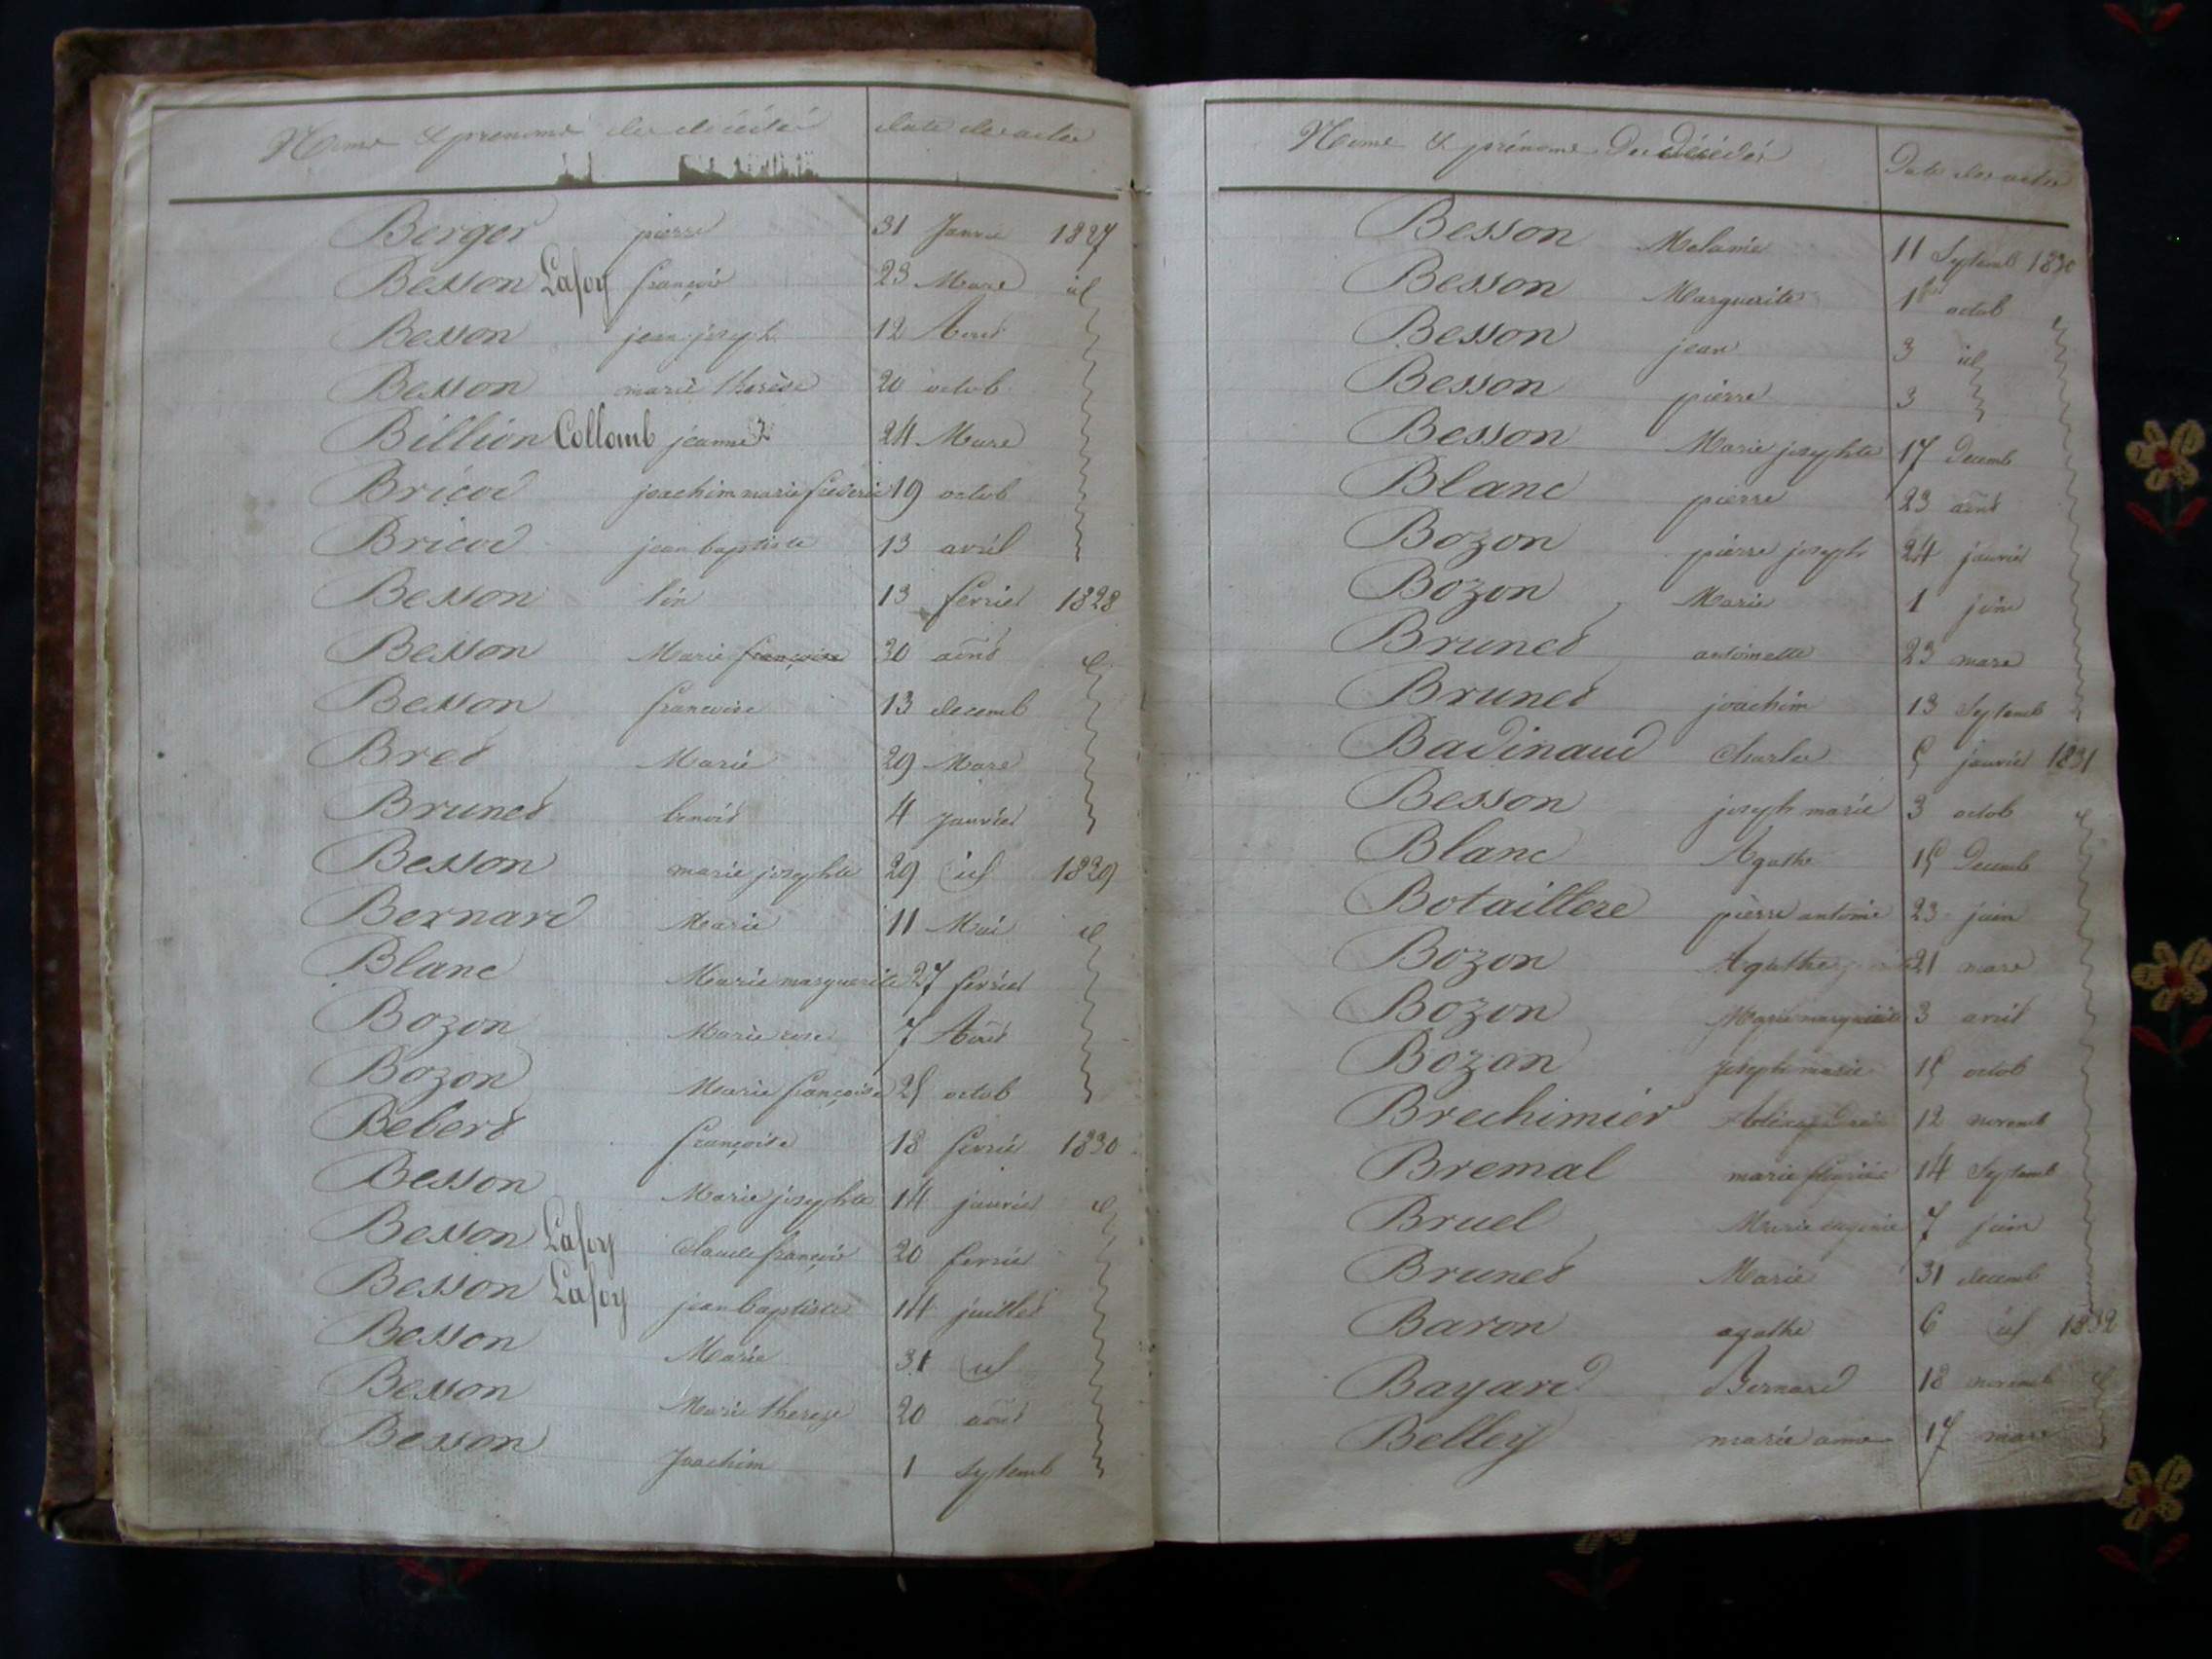 Noms & prenoms des décédés date des actes
Berger pierre 31 Janvie 1827
Besson Lafoy françois 23 Mars id
Besson jean joseph 12 Aout
Besson marie therèse 20 octob
Billion Collomb jeanne 24 Mars
Bricod joachim marie frederic 19 octob
Bricod jean baptiste 13 avril
Besson lin 13 fevrier 1828
Besson Marie françoise 30 aout
Besson francoise 13 decemb
Bret Marie 29 Mars
Brunet benoit 4 janvier
Besson marie josephte 29 id 1829
Bernard Marie 11 Mai id
Blanc Marie marguerite 27 fevrier
Bozon Marie rose 7 Aout
Bozon Marie françoise 25 octob
Bebert françoise 18 fevrie 1830
Besson Marie josephte 14 janvier id
Besson Lafoy Claude françois 20 fevrie
Besson Lafoy jean baptiste 14 juillet
Besson Marie 31 id
Besson Marie thereze 20 aout
Besson Joachim 1 Septemb
Noms & prénoms Des Décédés Date des actes
Besson Melanie 11 Septemb 1830
Besson Marguerite 1er octob
Besson jean 3 id
Besson pierre 3
Besson Marie josephte 17 Decemb
Blanc pierre 23 aout
Bozon pierre joseph 24 janvier
Bozon Marie 1 juin
Brunet antoinette 23 mars
Brunet joachim 13 Septemb
Badinaud Charles 5 janvier 1831
Besson joseph marie 3 octob
Blanc Agathe 15 Decemb
Botaillere pierre antoine 23 juin
Bozon Agathe 21 mars
Bozon Marie marguerite 3 avril
Bozon Joseph marie 15 octob
Brechimier 12 novemb
Bremal marie 14 Septemb
Bruel Marie eugenie 7 juin
Brunet Marie 31 decemb
Baron agathe 6 id 1832
Bayard Bernard 18 novemb
Belley marie anne 17 mars